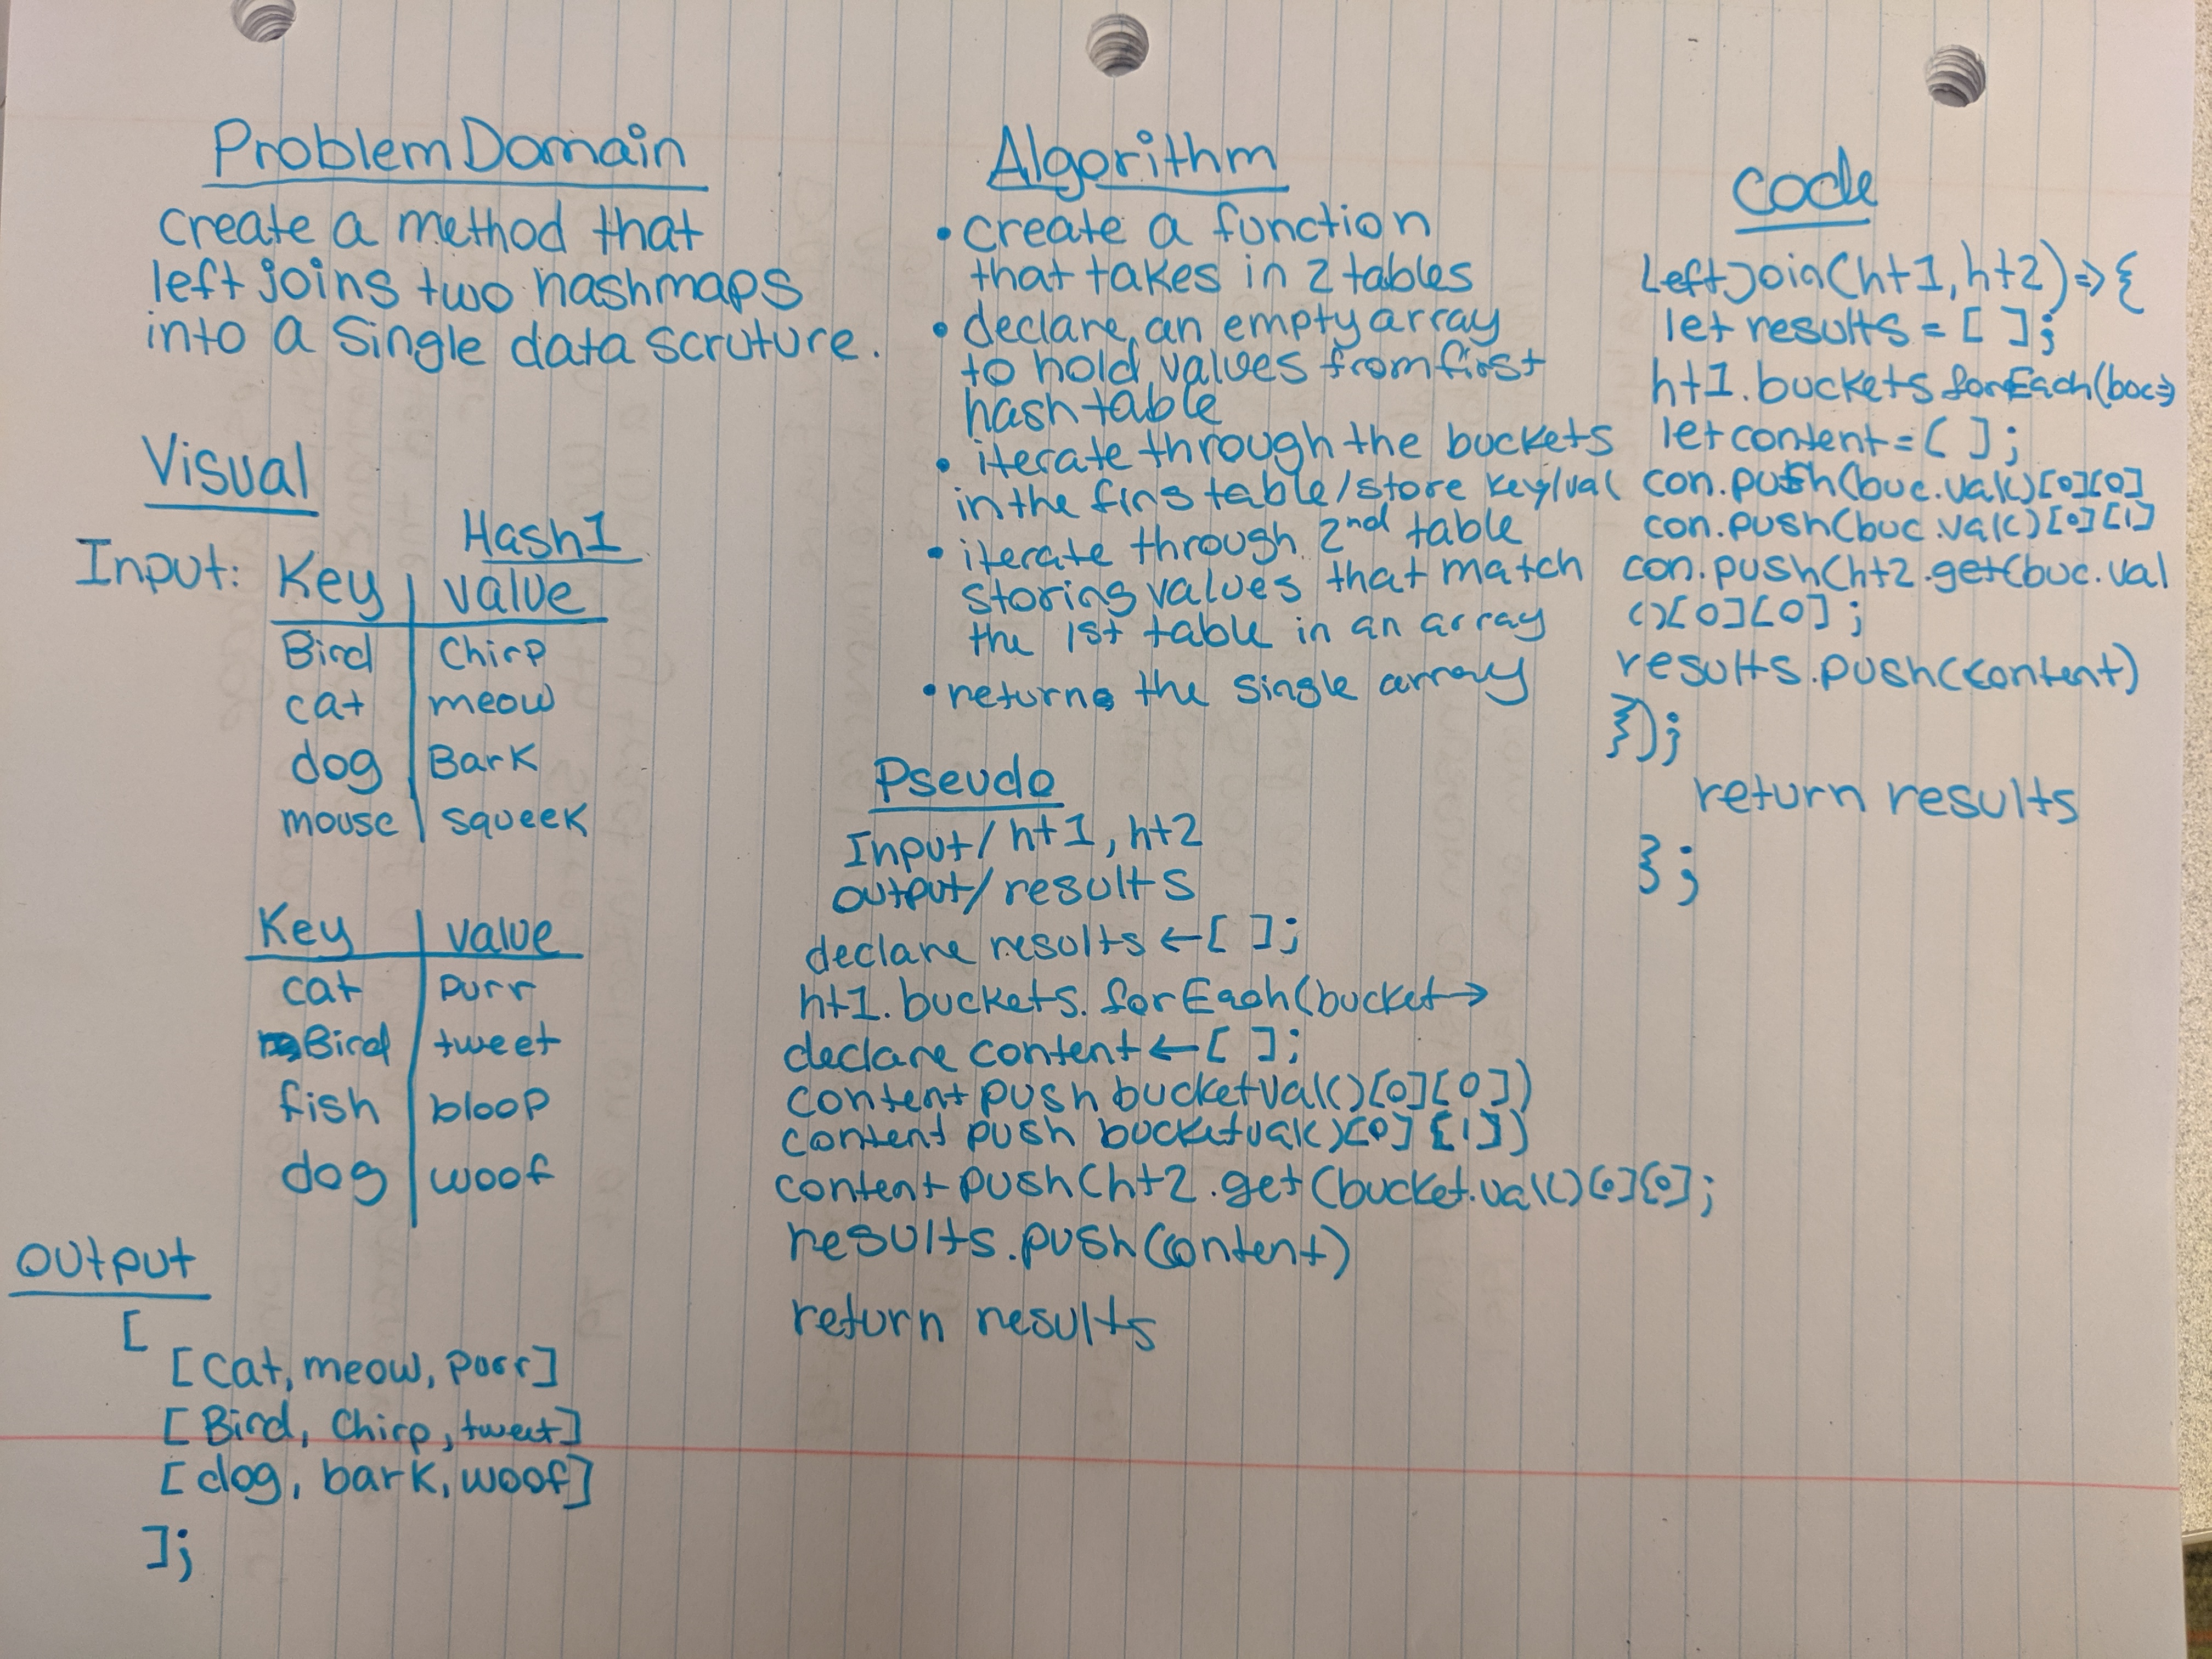 Problem Domain
Create a method that
left joins two hashmaps
into a single data scruture.
Visual
Hash1
Input: Key | value
Bird | Chirp
cat | meow
dog | Bark
mouse | squeek
Key | value
cat | purr
Bird | tweet
fish | bloop
dog | woof
output
[
[cat, meow, purr]
[Bird, chirp, tweet]
[dog, bark, woof]
];
Algorithm
• Create a function
that takes in 2 tables
• declare an empty array
to hold values from first
hash table
• iterate through the buckets
in the firs table/store key/val
• iterate through 2nd table
storing values that match
the 1st table in an array
• return the single array
Pseudo
Input/ ht1, ht2
output/ results
declare results ← [ ];
ht1.buckets.forEach(bucket→
declare content ← [ ];
content push bucket val()[0][0])
content push bucket val()[0][1])
content push(ht2.get(bucket.val()[0][0];
results.push(content)
return results
Code
LeftJoin(ht1, ht2)=>{
let results = [ ];
ht1.buckets forEach(buc=>
let content = [ ];
con.push(buc.val()[0][0]
con.push(buc.val()[0][1])
con.push(ht2.get(buc.val
()[0][0];
results.push(content)
});
return results
};